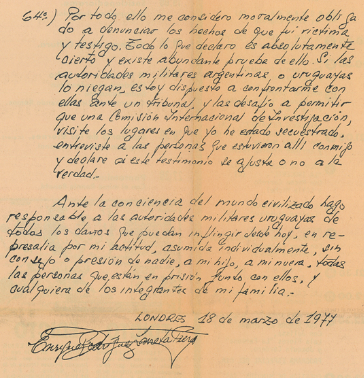 64a.) Por todo ello me considero moralmente obliga
do a denunciar los hechos de que fui víctima
y testigo. Todo lo que declaro es absolutamente
cierto y existe abundante prueba de ello. Si las
autoridades militares argentinas, o uruguayas
lo niegan, estoy dispuesto a confrontarme con
ellas ante un tribunal, y las desafío a permitir
que una Comisión Internacional de Investigación,
visite los lugares en que yo he estado secuestrado,
entreviste a las personas que estuvieron allí conmigo
y declare si este testimonio se ajusta o no a la
verdad.-
Ante la conciencia del mundo civilizado hago
responsable a las autoridades militares uruguayas de
todos los daños que puedan infligir desde hoy, en re-
presalia por mi actitud, asumida individualmente, sin
consejo o presión de nadie, a mi hijo, a mi nuera, todas
las personas que están en prisión junto con ellos, y
cualquiera de los integrantes de mi familia.-
LONDRES 18 de marzo de 1977
Enrique